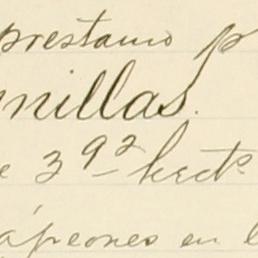 prestamo p
nillas.
e 392 hects
ápeones en l